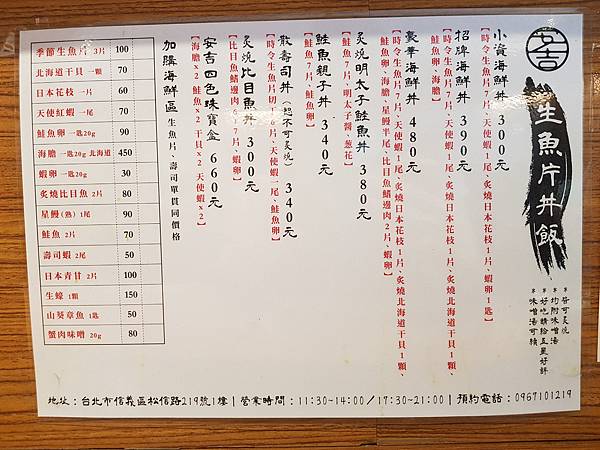 安吉
生魚片丼飯
*皆可炙燒
*均附味噌湯
*好吃請給五星好評
*味噌湯可續
小資海鮮丼 300元
【時令生魚片5片、天使紅蝦1尾、炙燒日本花枝1片、蝦卵1匙】
招牌海鮮丼 390元
【時令生魚片7片、天使紅蝦1尾、炙燒日本花枝1片、炙燒北海道干貝1顆、
鮭魚卵、海膽】
豪華海鮮丼 480元
【時令生魚片7片、天使紅蝦1尾、炙燒日本花枝1片、炙燒北海道干貝1顆、
鮭魚卵、海膽、星鰻半尾、比目魚鰭邊肉2片、蝦卵】
炙燒明太子鮭魚丼 380元
【鮭魚7片、明太子醬、蔥花】
鮭魚親子丼 340元
【鮭魚7片、鮭魚卵】
散壽司丼(恕不可炙燒) 340元
【時令生魚片切丁6片、天使蝦1尾、鮭魚卵】
炙燒比目魚丼 300元
【比目魚鰭邊肉6~7片、蝦卵】
安吉四色珠寶盒 660元
【海膽x2、鮭魚x2、干貝x2、天使蝦x2】
加購海鮮區 生魚片、壽司單貫同價格
季節生魚片 3片 100
北海道干貝 一顆 70
日本花枝 一片 60
天使紅蝦 一尾 70
鮭魚卵 一匙20g 90
海膽 一匙20g 北海道 450
蝦卵 一匙20g 30
炙燒比目魚 2片 80
星鰻(熟) 1尾 90
鮭魚 2片 70
壽司蝦 2尾 50
日本青甘 2片 100
生蠔 1顆 150
山葵章魚 1匙 50
蟹肉味噌 20g 80
地址:台北市信義區松信路219號1樓|營業時間:11:30-14:00/17:30-21:00|預約電話:0967101219